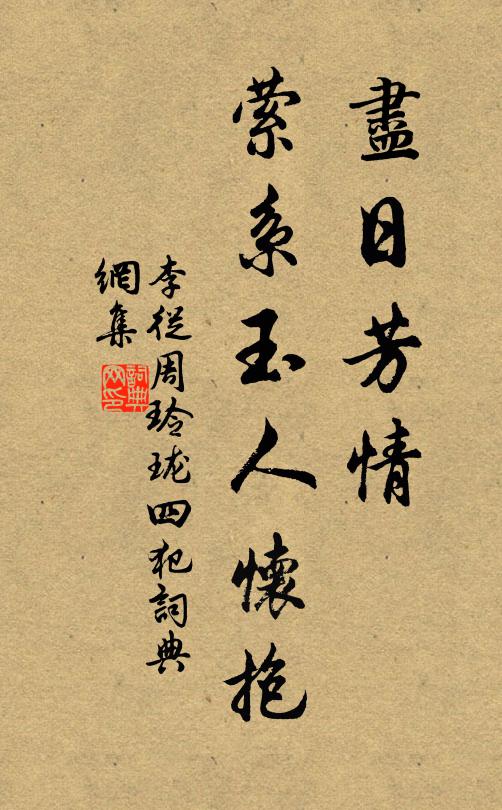 盡日芳情
萦系玉人懷抱
李從周玲瓏四犯詞典
網集
詞典
网印